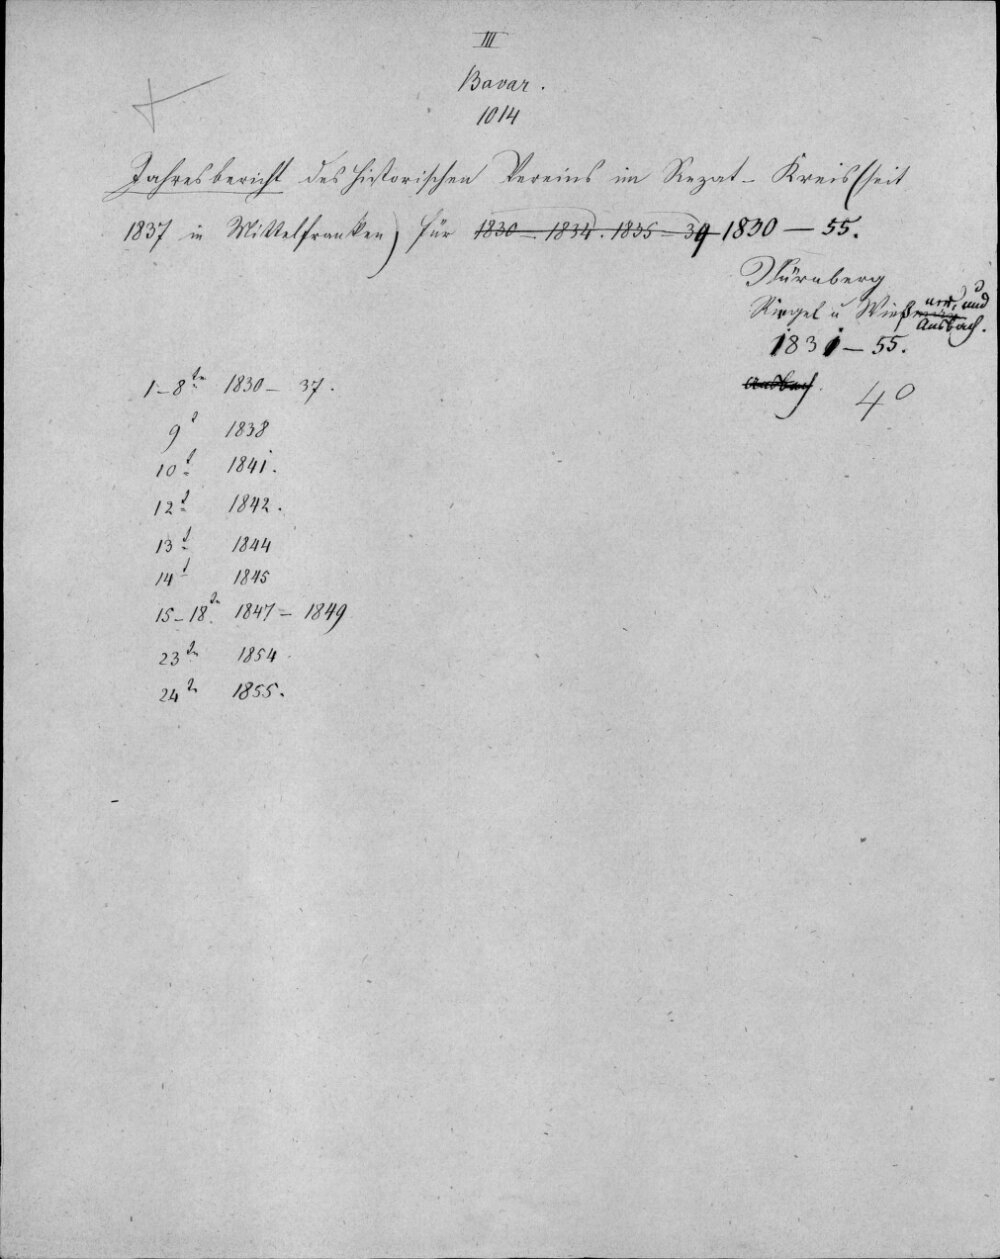 III
Bavar.
1014
Jahresbericht des historischen Vereins im Rezat-Kreis (seit
1837 in Mittelfranken) für 1830 – 1834. 1835 – 39 1830 – 55.
Nürnberg
Riegel u Wießner, und
Ansbach.
1831 – 55.
Ansbach. 4°
1–8tr 1830 – 37.
9t 1838
10t 1841.
12t 1842.
13t 1844
14t 1845
15–18tr 1847 – 1849
23tr 1854
24tr 1855.